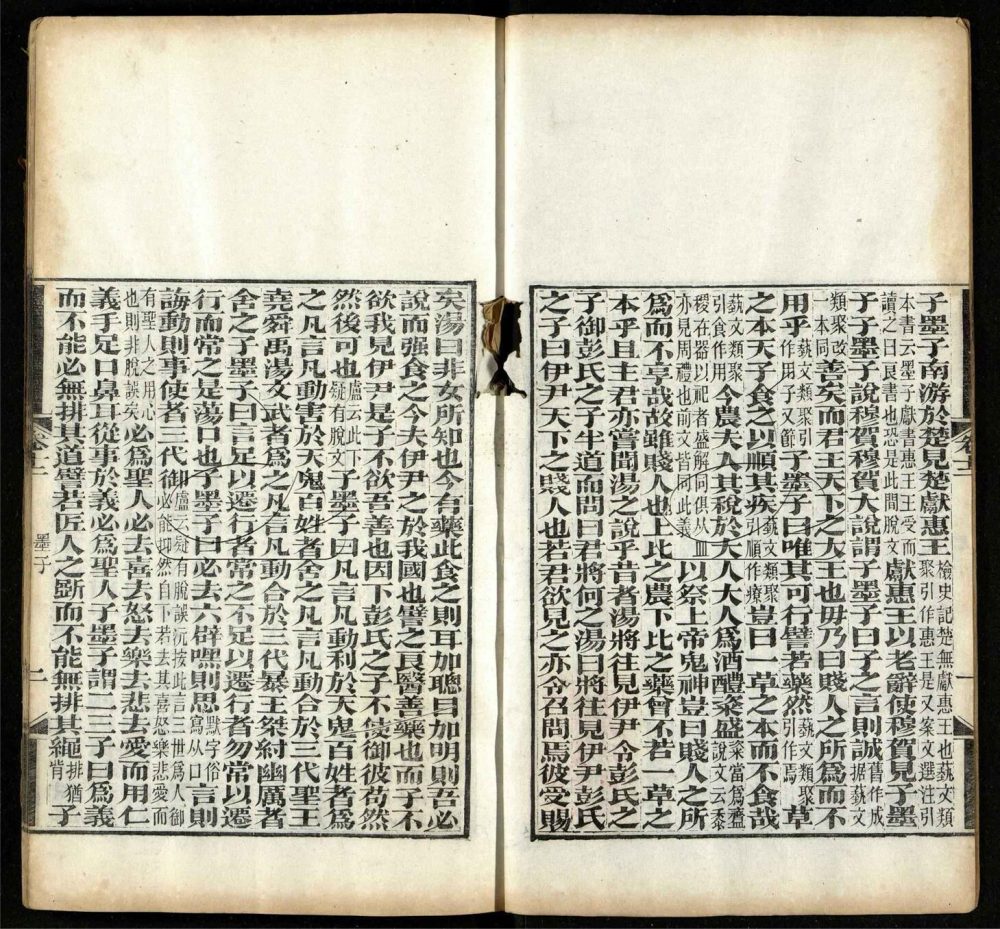 子墨子南游於楚見楚獻惠王檢史記楚無獻惠王也藝文類聚引作惠王是又案文選注引
本書云墨子獻書惠王王受而讀之曰良書也恐是此間脫文獻惠王以老辭使穆賀見子墨
子子墨子說穆賀穆賀大說謂子墨子曰子之言則誠舊作成據藝文
類聚改一本同善矣而君王天下之大王也毋乃曰賤人之所爲而不
用乎藝文類聚引作用子又節子墨子曰唯其可行譬若藥然藝文類聚引作焉草
之本天子食之以順其疾藝文類聚引順作療豈曰一草之本而不食哉
藝文類聚引食作用今農夫入其稅於大人大人爲酒醴粢盛粢當爲齍說文云黍
稷在器以祀者盛解同俱从皿亦見周禮也前文皆同此義以祭上帝鬼神豈曰賤人之所
爲而不享哉故雖賤人也上比之農下比之藥曾不若一草之
本乎且主君亦嘗聞湯之說乎昔者湯將往見伊尹令彭氏之
子御彭氏之子半道而問曰君將何之湯曰將往見伊尹彭氏
之子曰伊尹天下之賤人也若君欲見之亦令召問焉彼受賜
矣湯曰非女所知也今有藥此食之則耳加聰目加明則吾必
說而强食之今夫伊尹之於我國也譬之良醫善藥也而子不
欲我見伊尹是子不欲吾善也因下彭氏之子不使御彼苟然
然後可也盧云此下疑有脫文子墨子曰凡言凡動利於天鬼百姓者爲
之凡言凡動害於天鬼百姓者舍之凡言凡動合於三代聖王
堯舜禹湯文武者爲之凡言凡動合於三代暴王桀紂幽厲者
舍之子墨子曰言足以遷行者常之不足以遷行者勿常以遷
行而常之是蕩口也子墨子曰必去六辟嘿則思默字俗寫从口言則
誨動則事使者三代御盧云疑有脫誤沅按此言三世爲人御必能抑然自下若去其喜怒樂悲愛而
有聖人之用心也則非脫誤矣必爲聖人必去喜去怒去樂去悲去愛而用仁
義手足口鼻耳從事於義必爲聖人子墨子謂二三子曰爲義
而不能必無排其道譬若匠人之斲而不能無排其繩排猶肯子
墨子
二